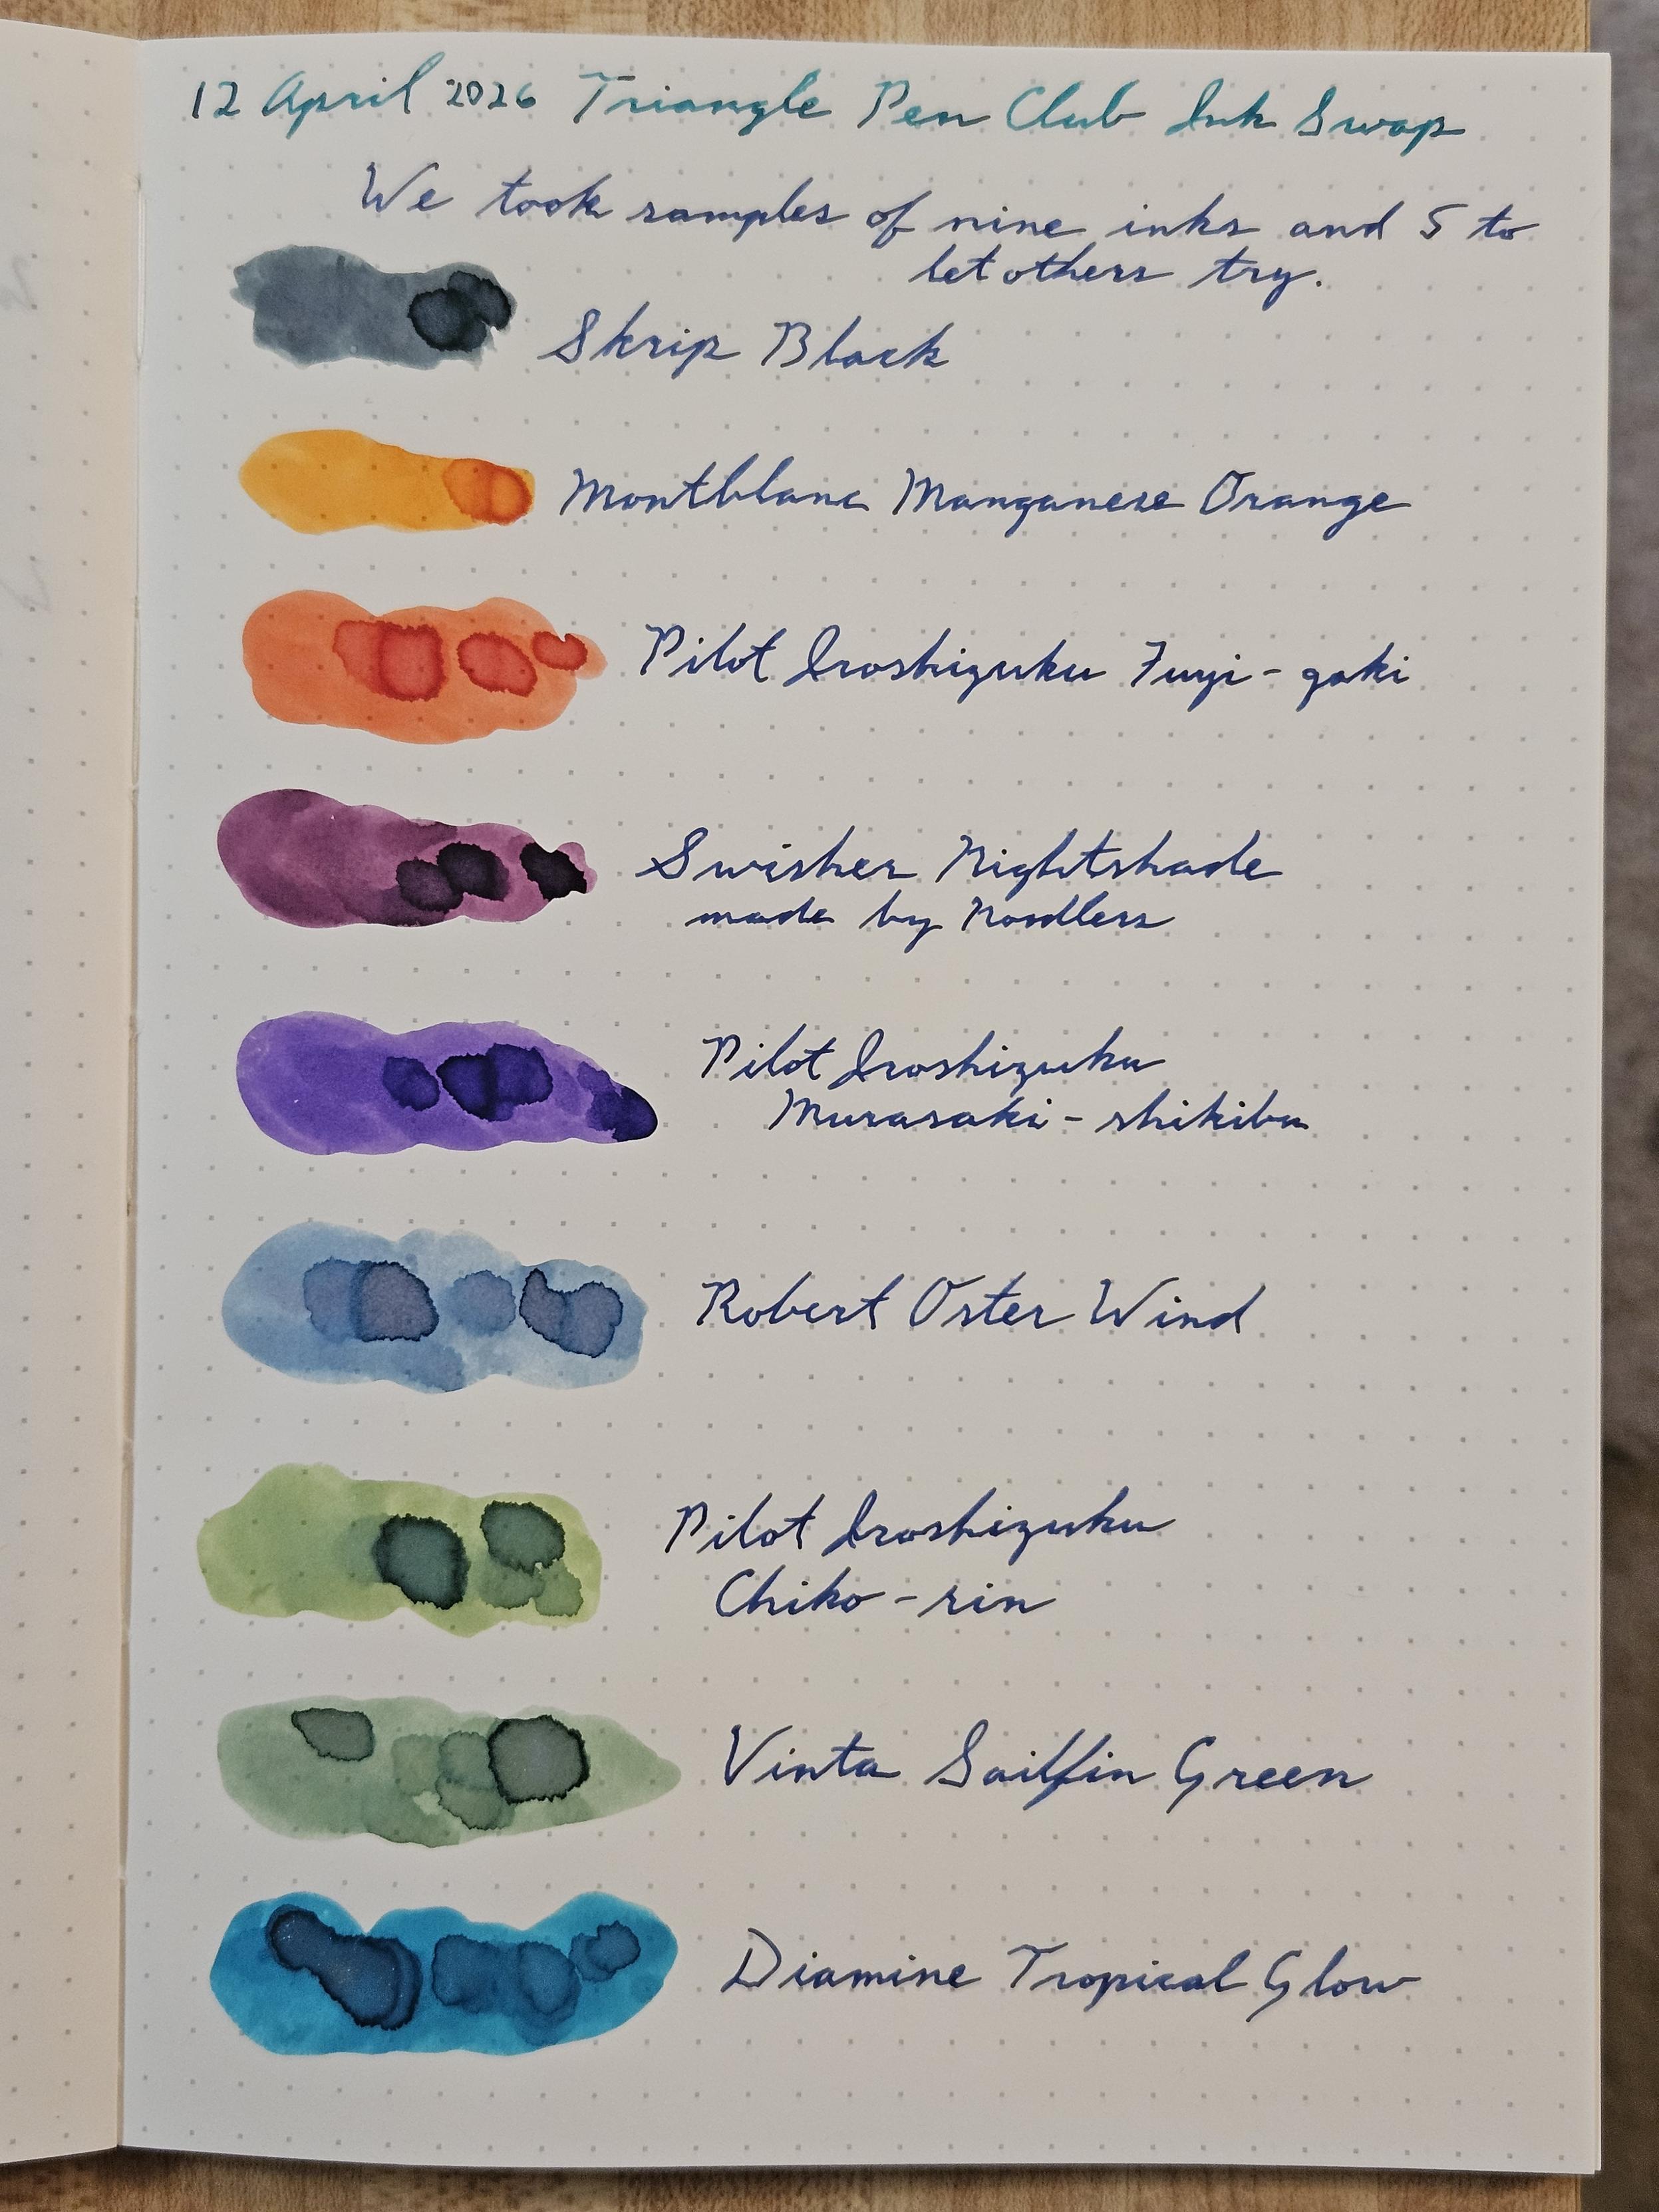 12 April 2026 Triangle Pen Club Ink Swap
We took samples of nine inks and 5 to
let others try.
Skrip Black
Montblanc Manganese Orange
Pilot Iroshizuku Fuyi-gaki
Swisher Nightshade
made by Noodlers
Pilot Iroshizuku
Murasaki-shikibu
Robert Oster Wind
Pilot Iroshizuku
Chiko-rin
Vinta Sailfin Green
Diamine Tropical Glow